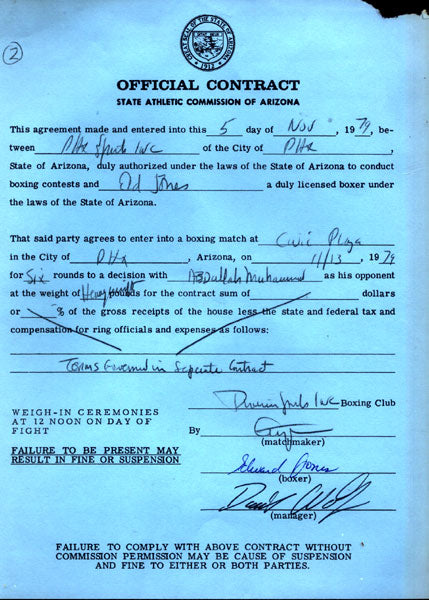 2
GREAT SEAL OF THE STATE OF ARIZONA
1912
OFFICIAL CONTRACT
STATE ATHLETIC COMMISSION OF ARIZONA
This agreement made and entered into this 5 day of Nov, 1979, be-
tween PHX Sports Inc of the City of PHX,
State of Arizona, duly authorized under the laws of the State of Arizona to conduct
boxing contests and Ed Jones a duly licensed boxer under
the laws of the State of Arizona.
That said party agrees to enter into a boxing match at Civic Plaza
in the City of PHX, Arizona, on 11/13, 1979
for Six rounds to a decision with Abdullah Muhammad as his opponent
at the weight of Heavyweight pounds for the contract sum of dollars
or % of the gross receipts of the house less the state and federal tax and
compensation for ring officials and expenses as follows:
Terms Governed in Seperate Contract
Inc Boxing Club
WEIGH-IN CEREMONIES
AT 12 NOON ON DAY OF
FIGHT
By
(matchmaker)
FAILURE TO BE PRESENT MAY
RESULT IN FINE OR SUSPENSION
Edward Jones
(boxer)
(manager)
FAILURE TO COMPLY WITH ABOVE CONTRACT WITHOUT
COMMISSION PERMISSION MAY BE CAUSE OF SUSPENSION
AND FINE TO EITHER OR BOTH PARTIES.